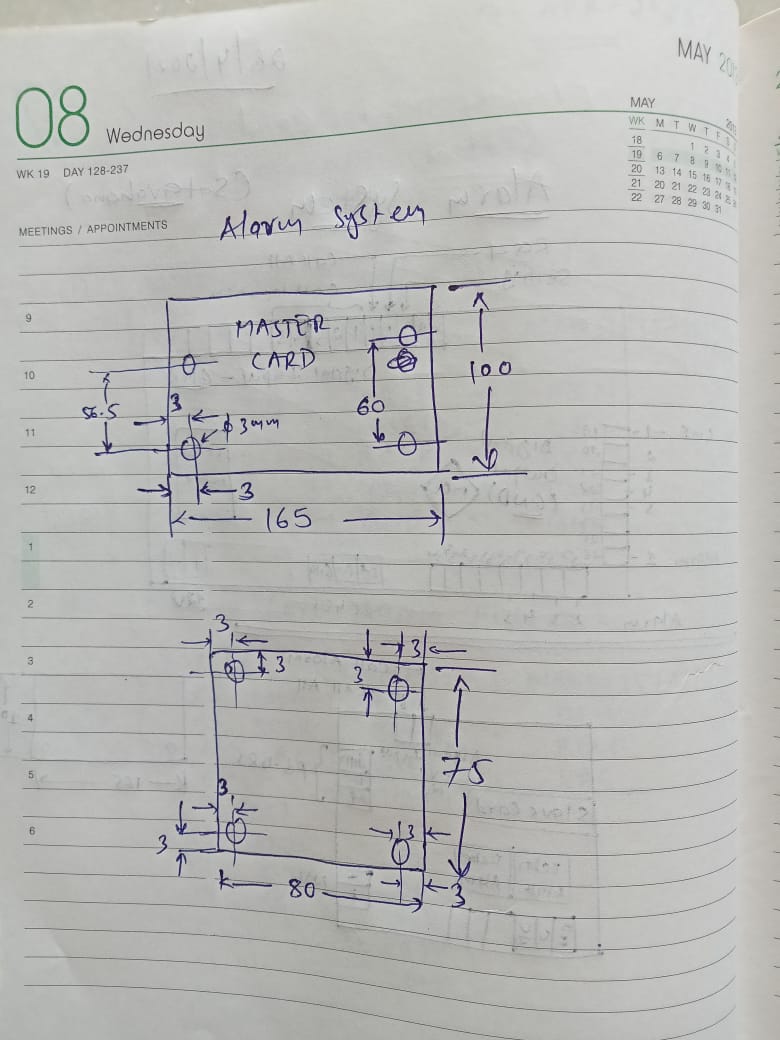 MAY 20
08 Wednesday
WK 19 DAY 128-237
MAY
WK M T W T F
18 1 2 3 4
19 6 7 8 9 10 11
20 13 14 15 16 17 18
21 20 21 22 23 24 25
22 27 28 29 30 31
MEETINGS / APPOINTMENTS
Alarm System
9
MASTER
CARD
10
100
56.5
3
60
11
ϕ 3mm
12
3
165
1
2
3
3
3
3
3
3
4
75
5
3
6
3
3
80
3